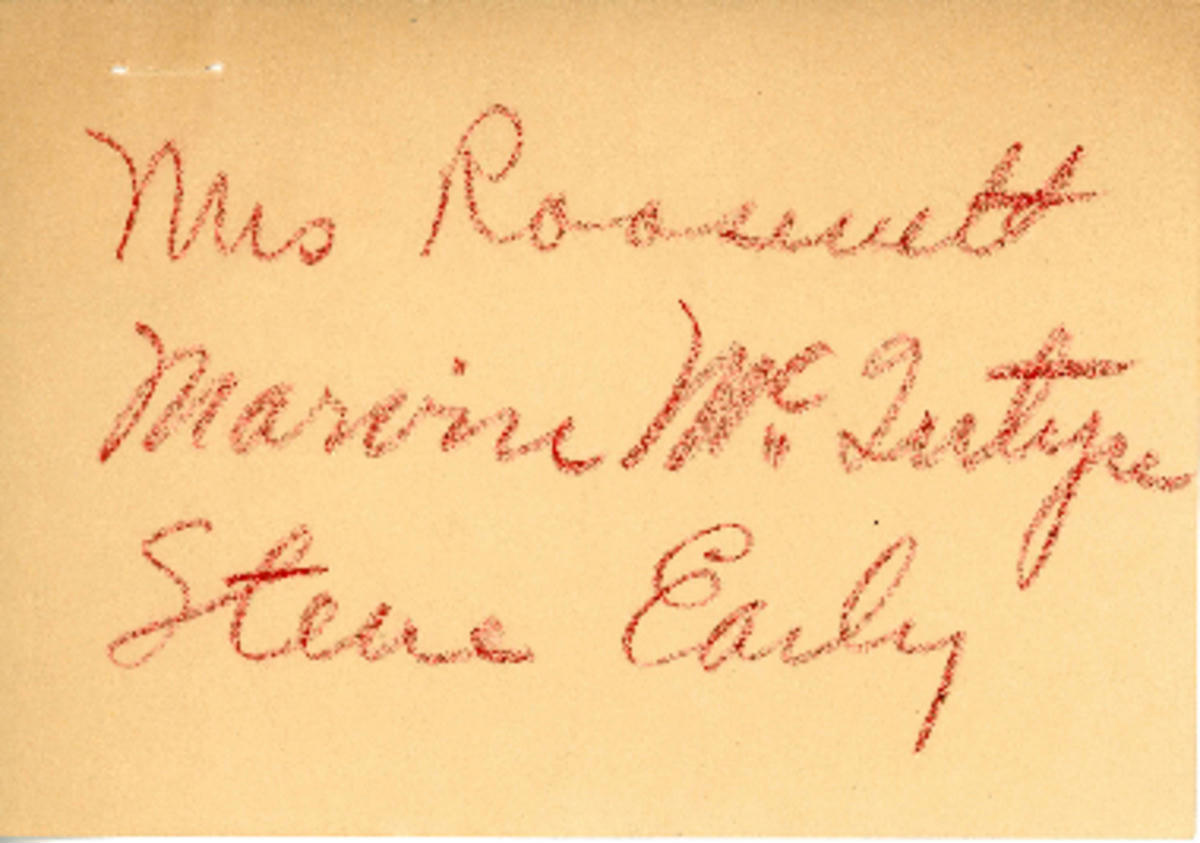 Mrs Roosevelt
Marvin Mc Intyre
Steve Early